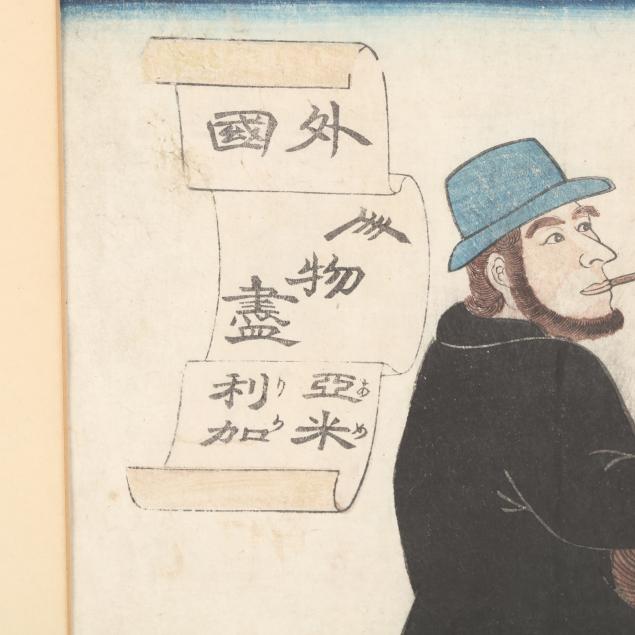 外國
人物盡
亞米
利加
あめ
りか